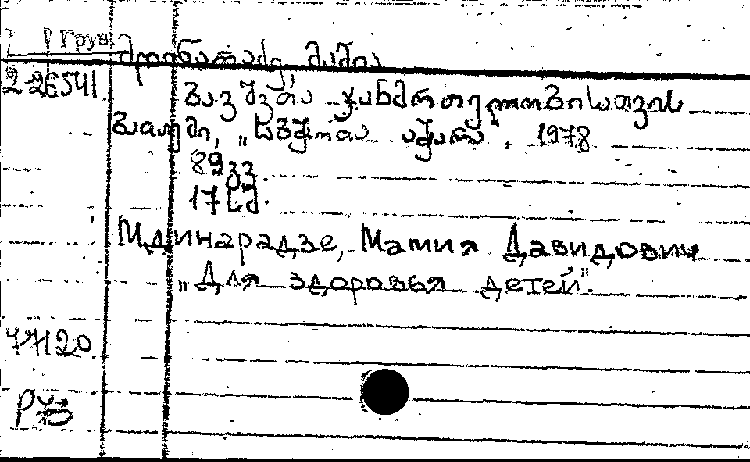 Р Груз
მდინარაძე, მამია
2-26541 ბავშვთა ჯანმრთელობისათვის
ბათუმი, „საბჭოთა აჭარა“. 1978
89 გვ.
17 სმ.
Мдинарадзе, Мамия Давидович
„Для здоровья детей".
77120